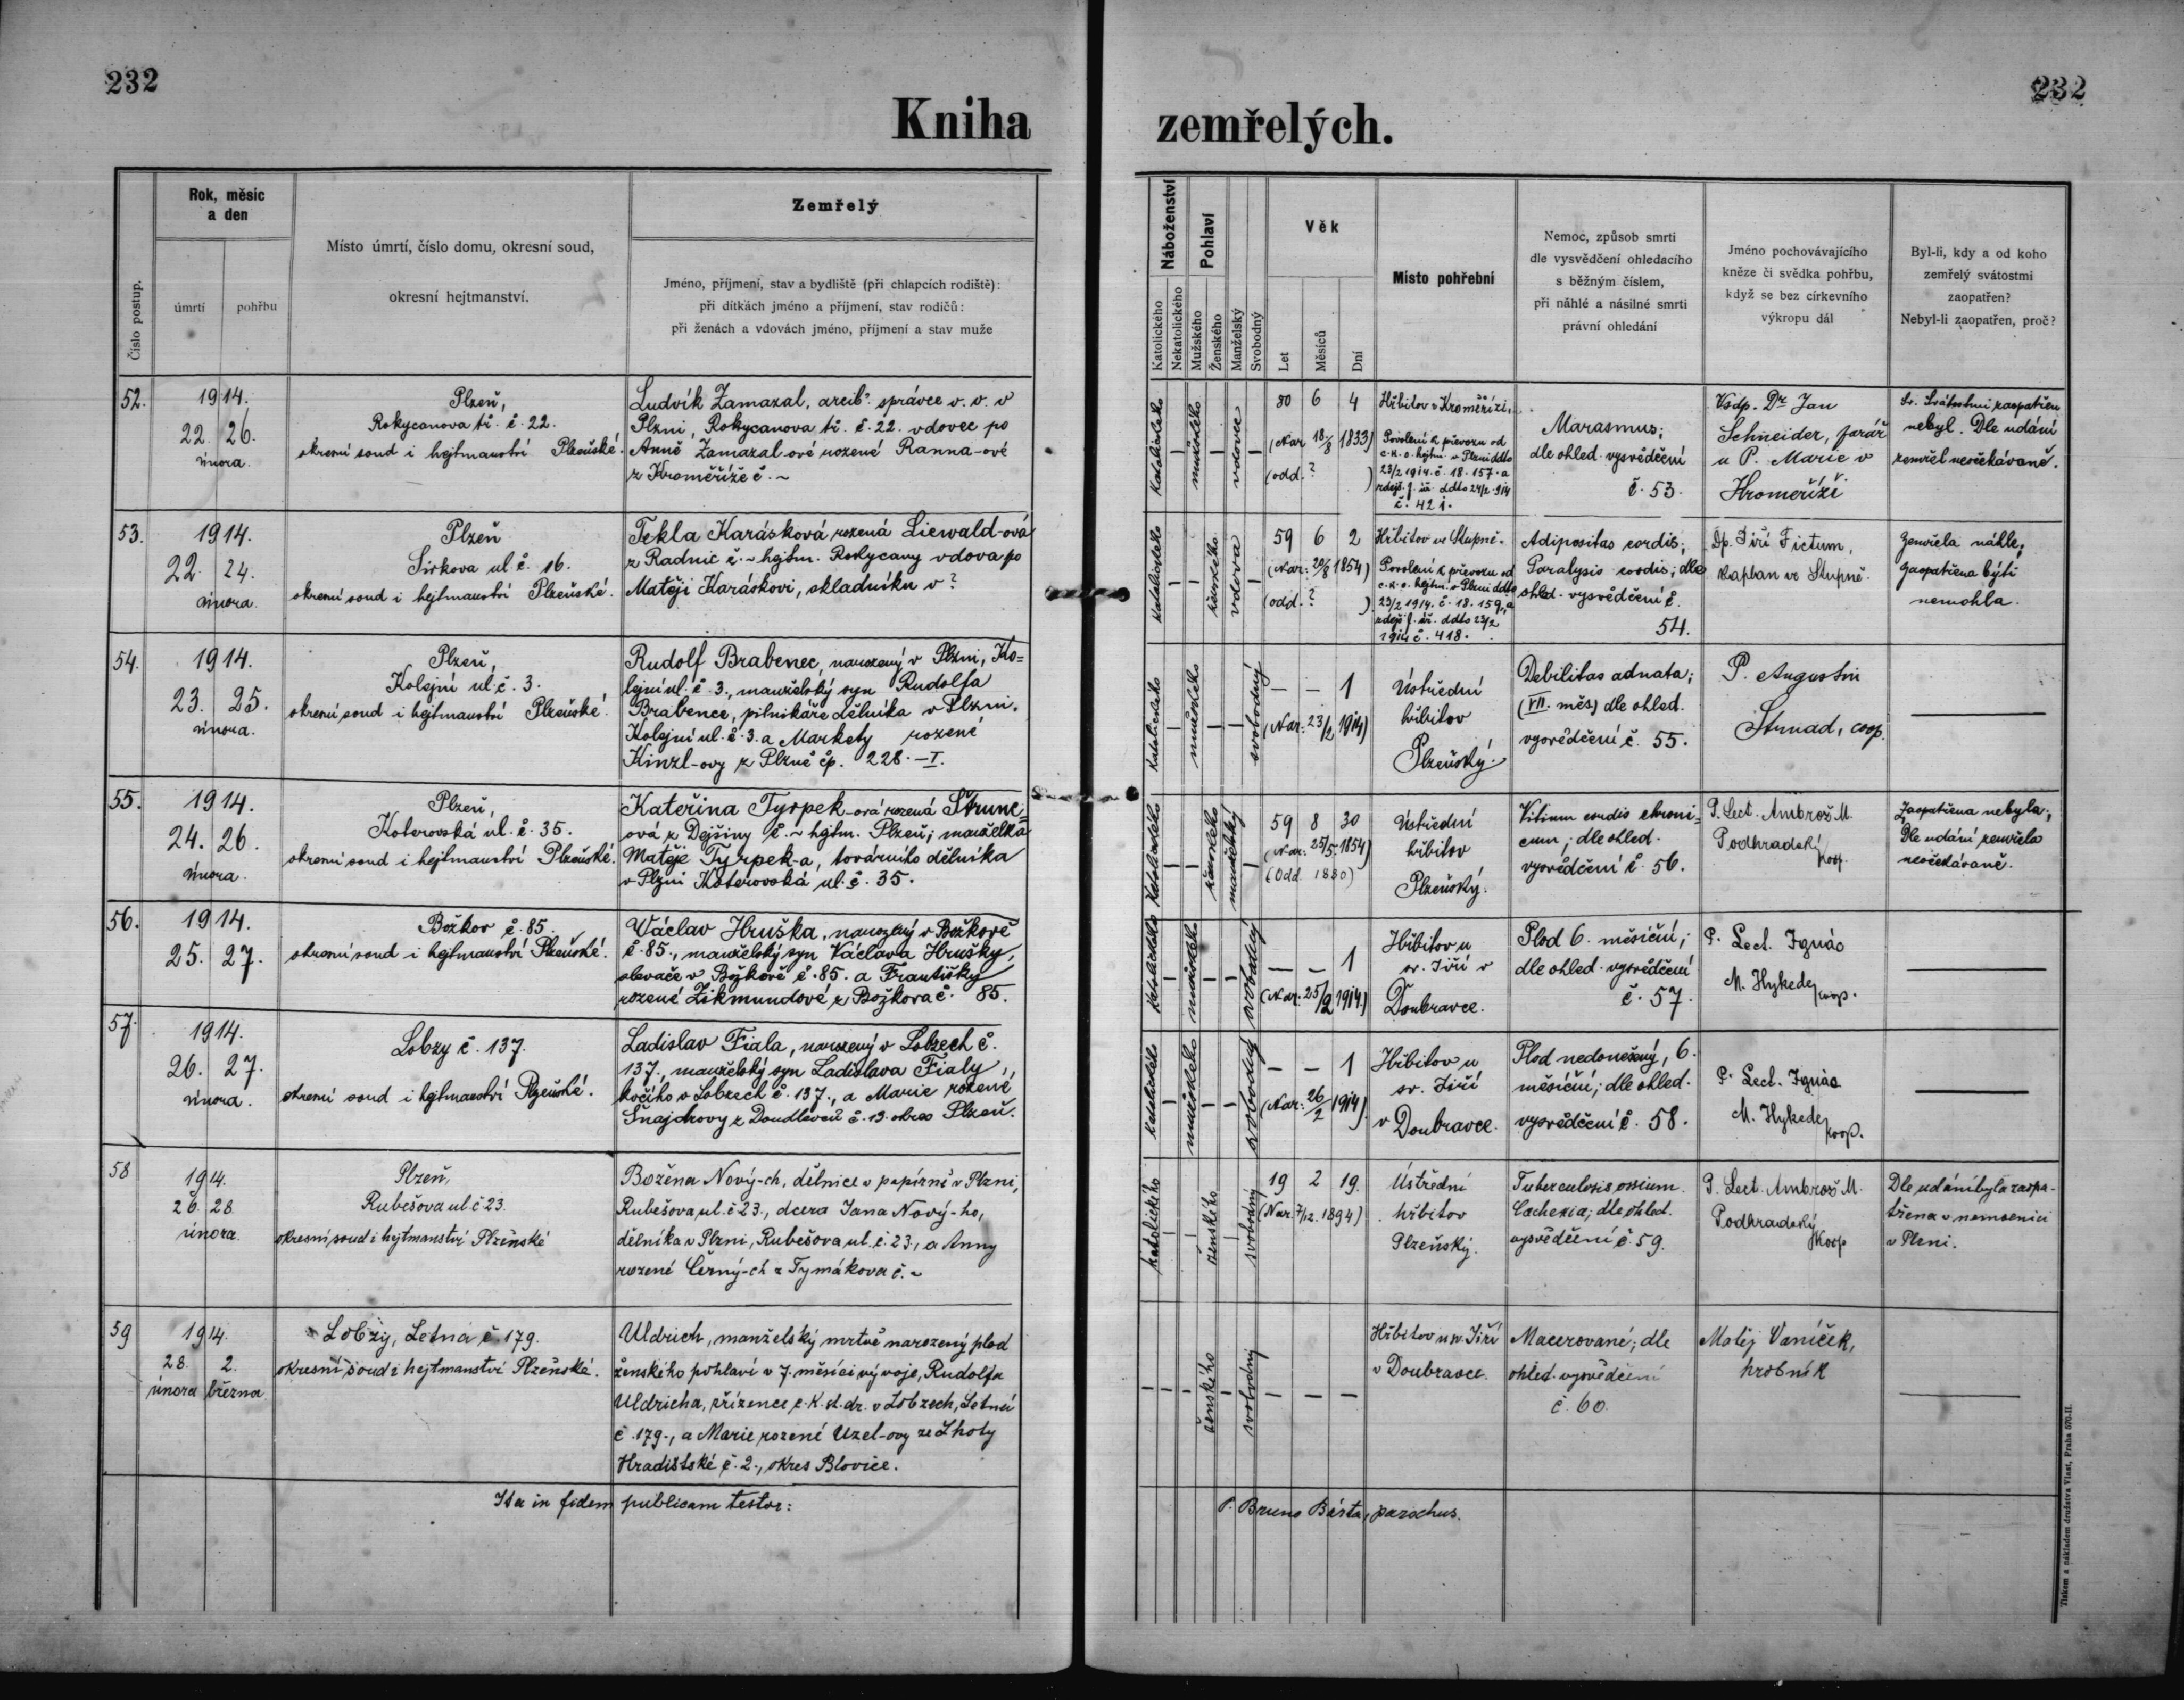 232
232
Kniha
zemřelých.
Číslo postup.
Rok, měsíc
a den
úmrtí
pohřbu
Místo úmrtí, číslo domu, okresní soud,
okresní hejtmanství.
Zemřelý
Jméno, příjmení, stav a bydliště (při chlapcích rodiště):
při dítkách jméno a příjmení, stav rodičů:
při ženách a vdovách jméno, příjmení a stav muže
Náboženství
Katolického
Nekatolického
Pohlaví
Mužského
Ženského
Manželský
Svobodný
Věk
Let
Měsíců
Dní
Místo pohřební
Nemoc, způsob smrti
dle vysvědčení ohledacího
s běžným číslem,
při náhlé a násilné smrti
právní ohledání
Jméno pochovávajícího
kněze či svědka pohřbu,
když se bez církevního
výkropu dál
Byl-li, kdy a od koho
zemřelý svátostmi
zaopatřen?
Nebyl-li zaopatřen, proč?
52.
1914.
22. 26.
února.
Plzeň,
Rokycanova tř. č. 22.
okresní soud i hejtmanství Plzeňské.
Ludvík Zamazal, arcib. správce v. v. v
Plzni, Rokycanova tř. č. 22. vdovec po
Anně Zamazal-ové rozené Ranna-ové
z Kroměříže č. ~
Katolického
mužského
vdovec
80 6 4
(Nar. 18/8 1833)
(odd. ? )
Hřbitov v Kroměříži.
Povolení k převozu od
c. k. o. hejtm. v Plzni ddto
23/2 1914. č. 18.157. a
zdejš. f. úř. ddto 24/2 914
č. 421.
Marasmus;
dle ohled. vysvědčení
č. 53.
Vsdp. Dr. Jan
Schneider, farář
u P. Marie v
Kroměříži
Sv. Svátostmi zaopatřen
nebyl. Dle udání
zemřel neočekávaně.
53.
1914.
22. 24.
února.
Plzeň
Sirkova ul. č. 16.
okresní soud i hejtmanství Plzeňské.
Tekla Karásková rozená Liewald-ová
z Radnic č. ~ hejtm. Rokycany vdova po
Matěji Karáskovi, skladníku v ?
Katolického
ženského
vdova
59 6 2
(Nar: 20/8 1854)
(odd. ? )
Hřbitov ve Stupně.
Povolení k převozu od
c. k. o. hejtm. v Plzni ddto
23/2 1914. č. 18.159, a
zdejš. f. úř. ddto 23/2
1914 č. 418.
Adipositas cordis;
Paralysis cordis; dle
ohled. vysvědčení č.
54.
Dp. Jiří Fictum,
kaplan ve Stupně.
Zemřela náhle;
zaopatřena býti
nemohla.
54.
1914.
23. 25.
února.
Plzeň,
Kolejní ul. č. 3.
okresní soud i hejtmanství Plzeňské.
Rudolf Brabenec, narozený v Plzni, Ko=
lejní ul. č. 3., manželský syn Rudolfa
Brabence, pilnikáře dělníka v Plzni.
Kolejní ul. č. 3. a Markety rozené
Kinzl-ovy z Plzně čp. 228.-I.
Katolického
mužského
svobodný
– – 1
(Nar: 23/2 1914)
Ústřední
hřbitov
Plzeňský.
Debilitas adnata;
(VII. měs.) dle ohled.
vysvědčení č. 55.
P. Augustin
Strnad, coop.
55.
1914.
24. 26.
února.
Plzeň,
Koterovská ul. č. 35.
okresní soud i hejtmanství Plzeňské.
Kateřina Tyrpek-ová rozená Štrunc=
ová z Dejšiny č. ~ hejtm. Plzeň; manželka
Matěje Tyrpek-a, továrního dělníka
v Plzni Koterovská ul. č. 35.
Katolického
ženského
manželský
59 8 30
(Nar: 25/5 1854)
(Odd. 1880)
Ústřední
hřbitov
Plzeňský.
Vitium cordis chroni=
cum; dle ohled.
vysvědčení č. 56.
P. Lect. Ambrož M.
Podhradský
koop.
Zaopatřena nebyla;
Dle udání zemřela
neočekávaně.
56.
1914.
25. 27.
Božkov č. 85.
okresní soud i hejtmanství Plzeňské.
Václav Hruška, narozený v Božkově
č. 85., manželský syn Václava Hrušky,
slevače v Božkově č. 85. a Františky
rozené Zikmundové z Božkova č. 85.
Katolického
mužského
svobodný
– – 1
(Nar: 25/2 1914)
Hřbitov u
sv. Jiří v
Doubravce.
Plod 6. měsíční;
dle ohled. vysvědčení
č. 57.
P. Lect. Ignác
M. Hykede
koop.
57.
1914.
26. 27.
února.
Lobzy č. 137.
okresní soud i hejtmanství Plzeňské.
Ladislav Fiala, narozený v Lobzech č.
137., manželský syn Ladislava Fialy,
kočího v Lobzech č. 137., a Marie rozené
Šnajdrovy z Doudlevec č. 13. okres Plzeň.
Katolického
mužského
svobodný
– – 1
(Nar: 26/2 1914)
Hřbitov u
sv. Jiří
v Doubravce.
Plod nedonešený, 6.
měsíční; dle ohled.
vysvědčení č. 58.
P. Lect. Ignác
M. Hykede
koop.
58
1914.
26. 28.
února.
Plzeň,
Rubešova ul. č 23.
okresní soud i hejtmanství Plzeňské
Božena Nový-ch, dělnice v papírně v Plzni,
Rubešova ul. č 23., dcera Jana Nový-ho,
dělníka v Plzni, Rubešova ul. č. 23, a Anny
rozené Černý-ch z Tymákova č. ~
katolického
ženského
svobodný
19 2 19.
(Nar. 7/12. 1894)
Ústřední
hřbitov
Plzeňský.
Tuberculosis ossium.
Cachexia; dle ohled.
vysvědčení č. 59.
P. Lect. Ambrož M.
Podhradský
koop
Dle udání byla zaopa-
třena v nemocnici
v Plzni.
59
1914.
28. 2.
února března
Lobzy, Letná č. 179.
okresní soud i hejtmanství Plzeňské.
Uldrich, manželský mrtvě narozený plod
ženského pohlaví v 7. měsíci vývoje, Rudolfa
Uldricha, zřízence c. k. st. dr. v Lobzech, Letná
č. 179., a Marie rozené Uzel-ovy ze Lhoty
Hradištské č. 2., okres Blovice.
ženského
svobodný
– – –
Hřbitov u sv. Jiří
v Doubravce.
Macerované; dle
ohled. vysvědčení
č. 60.
Matěj Vaníček,
hrobník
Ita in fidem publicam testor:
P. Bruno Bárta, parochus.
Tiskem a nákladem družstva Vlast, Praha 570-II.